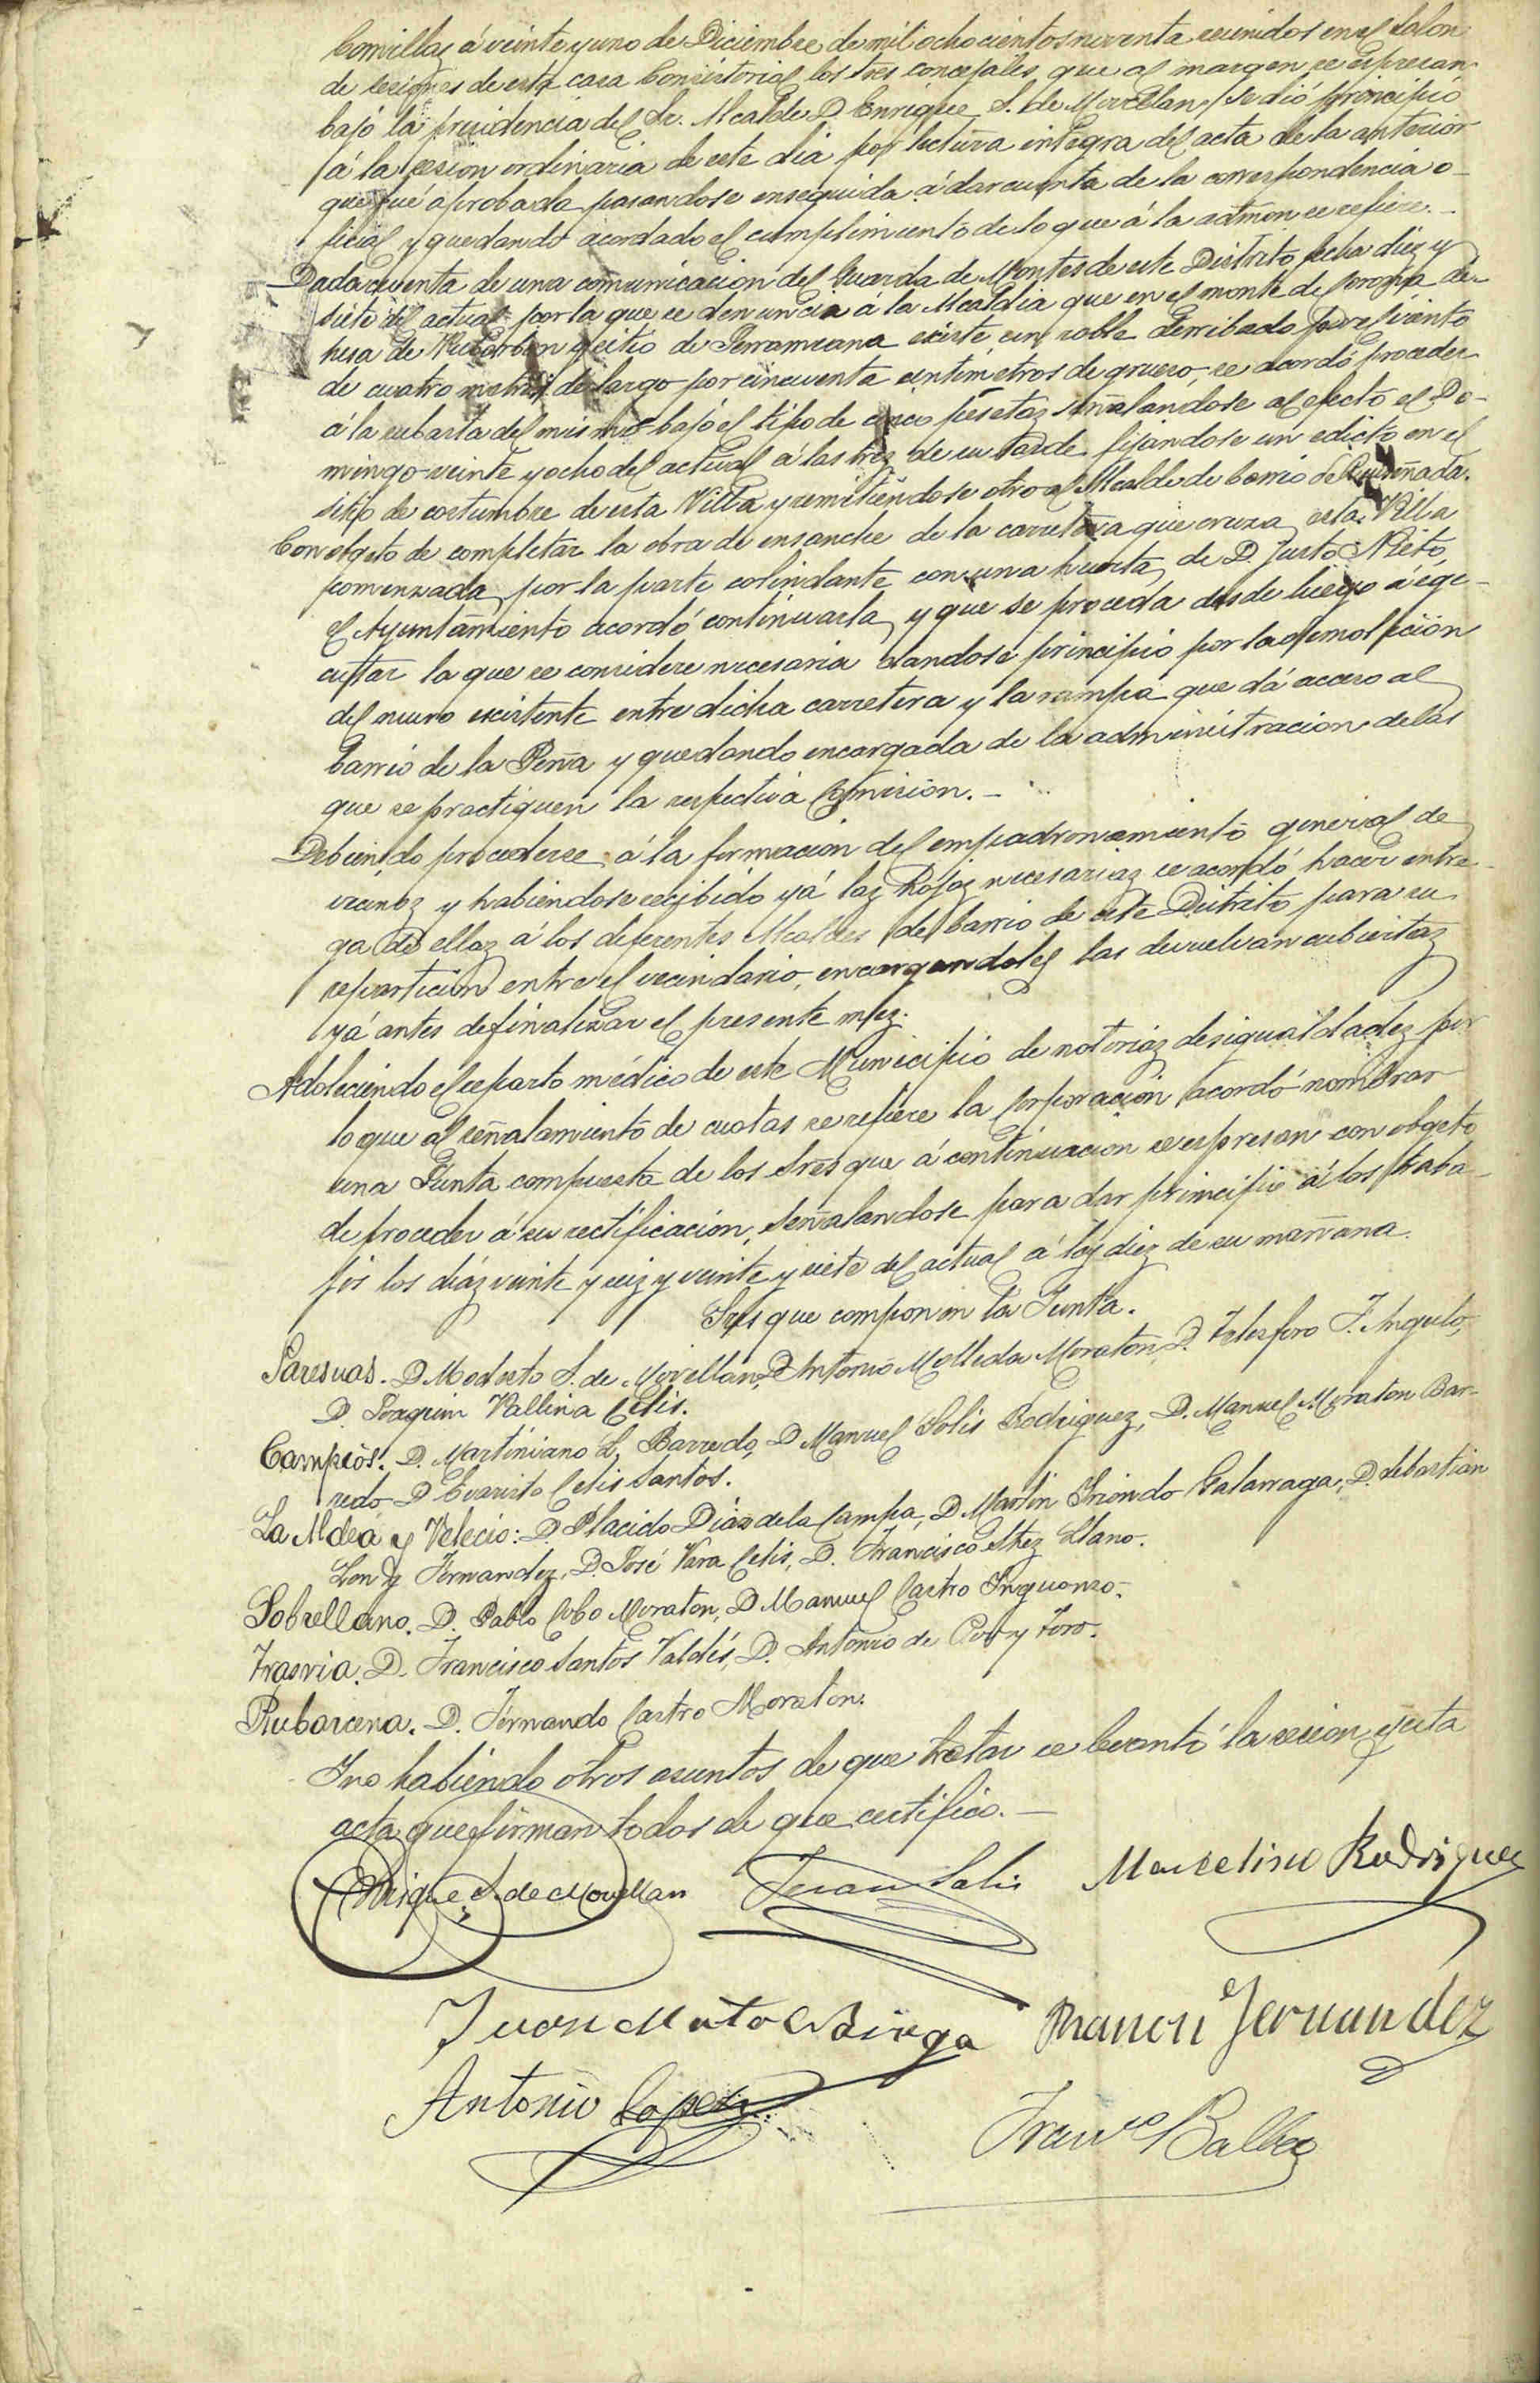 Comillas á veinte y uno de Diciembre de mil ochocientos noventa reunidos en el Salon
de sesiones de esta casa Consistorial los Sres concejales que al margen se espresan
bajo la presidencia del Sr. Alcalde D. Enrique S. de Movellan, se dió principio
á la sesion ordinaria de este dia por lectura integra del acta de la anterior
que fué aprobada pasandose enseguida á dar cuenta de la correspondencia o-
ficial y quedando acordado el cumplimiento de lo que á la admon se refiere.—
Dada cuenta de una comunicacion del Guarda de Montes de este Distrito fecha diez y
siete del actual por la que se denuncia á la Alcaldia que en el monte de de-
hesa de y sitio de existe un roble derribado por el viento
de cuatro metros de largo por cincuenta centimetros de grueso, se acordó proceder
á la subasta del mismo bajo el tipo de cinco pesetas señalandose al efecto el Do-
mingo veinte y ocho del actual á las tres de su tarde fijandose un edicto en el
sitio de costumbre de esta Villa y remitiendose otro al Alcalde de barrio de Ruiseñada.
Con obgeto de completar la obra de ensanche de la carretera que cruza esta Villa
comenzada por la parte colindante con una huerta de D. Justo Nieto,
el Ayuntamiento acordó continuarla y que se proceda desde luego á ege-
cutar la que se considere necesaria dandose principio por la demolicion
del muro escistente entre dicha carretera y la rampa que dá acceso al
barrio de la Peña y quedando encargada de la administracion de las
que se practiquen la respectiva Comision.—
Debiendo procederse á la formacion del empadronamiento general de
vecinos y habiendose recibido yá las hojas necesarias se acordó hacer entre-
ga de ellas á los diferentes Alcaldes de barrio de este Distrito para su
reparticion entre el vecindario, encargandoles las devuelvan cubiertas
yá antes de finalizar el presente mes.
Adoleciendo el reparto médico de este Municipio de notorias desigualdades por
lo que al señalamiento de cuotas se refiere la Corporacion acordó nombrar
una Junta compuesta de los Sres que á continuacion se espresan con obgeto
de proceder á su rectificacion, señalandose para dar principio á los traba-
jos los dias veinte y seis y veinte y siete del actual á las diez de su mañana.
Sres que componen la Junta.
D. Modesto S. de Movellan, D. Antonio Molleda Moraton, D. Telesforo F. Angulo,
D. Joaquin Vallina Celis.
Campíos. D. Martiniano L. Barredo, D. Manuel Solis Rodriguez, D. Manuel Moraton Bar-
redo D. Evaristo Celis Santos.
La Aldea y Velecio: D. Placido Diaz de la Campa, D. Martin Iriondo Galarraga, D. Sebastian
Fernandez, D. José Vara Celis, D. Francisco Llano.
Sobrellano. D. Pablo Cobo Moraton, D. Manuel Castro Inguanzo.
Trasvia. D. Francisco Santos Valdés, D. Antonio de y Toro.
Rubarcena. D. Fernando Castro Moraton.
Y no habiendo otros asuntos de que tratar se levantó la sesion y esta
acta que firman todos de que certifico.—
Enrique S. de Movellan Juan Solis Marcelino Rodriguez
Juan Ramon Fernandez
Antonio Lopez
Franco Balbas